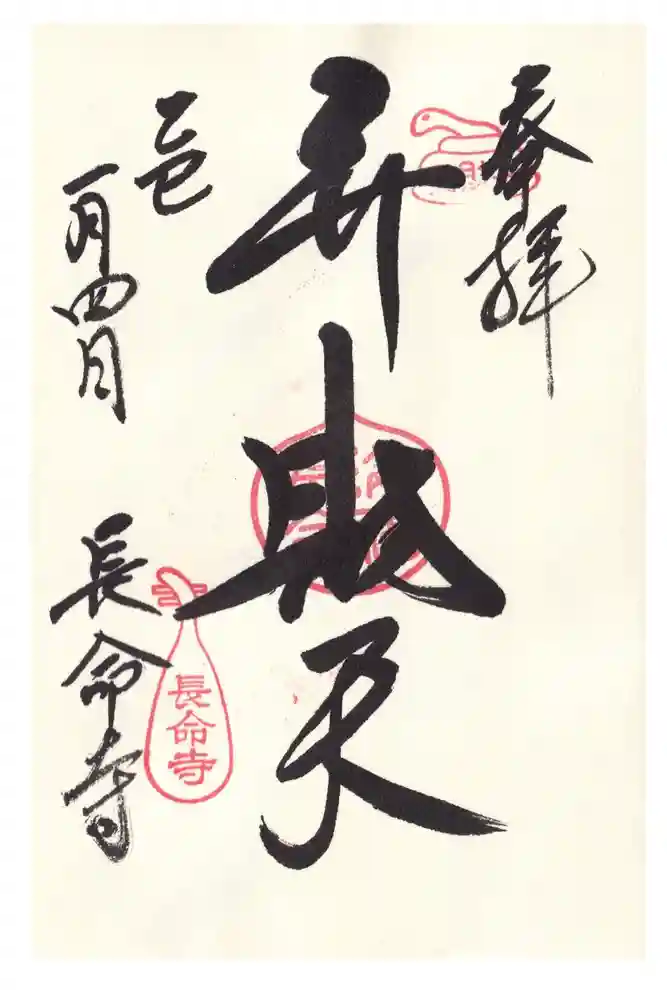 奉拝
弁財天
一月四日
長命寺
長命寺